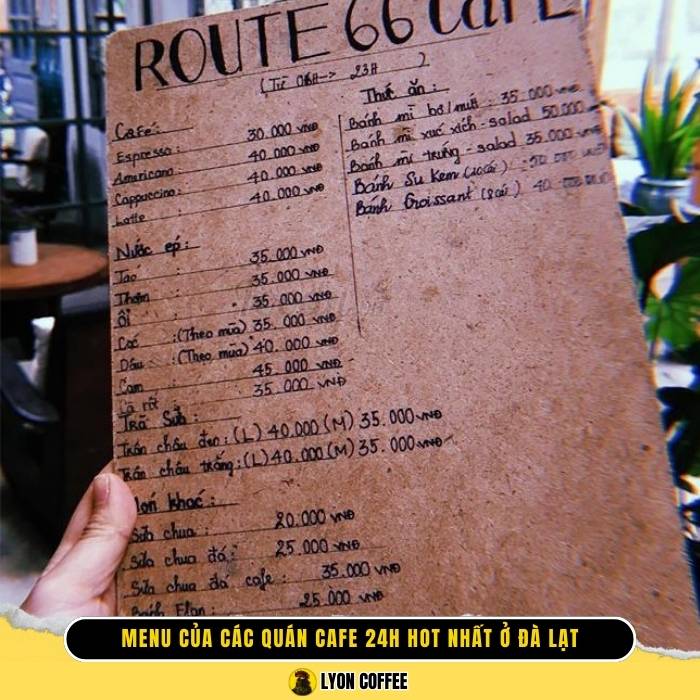 ROUTE 66 CAFE
(Từ 06H-> 23H )
Café:
Espresso : 30.000 VNĐ
Americano : 40.000 VNĐ
Cappuccino : 40.000 VNĐ
Latte : 40.000 VNĐ
Nước ép:
Táo : 35.000 VNĐ
Thơm : 35.000 VNĐ
Ổi : 35.000 VNĐ
Cóc :(Theo mùa) 35.000 VNĐ
Dâu :(Theo mùa) 40.000 VNĐ
Cam 45.000 VNĐ
Cà rốt : 35.000 VNĐ
Trà Sữa:
Trân châu đen: (L) 40.000 (M) 35.000 VNĐ
Trân châu trắng: (L) 40.000 (M) 35.000 VNĐ
Món khác:
Sữa chua : 20.000 VNĐ
Sữa chua đá: 25.000 VNĐ
Sữa chua đá cafe : 35.000 VNĐ
Bánh Flan : 25.000 VNĐ
Thức ăn :
Bánh mì bơ/mứt : 35.000 VNĐ
Bánh mì xúc xích - salad 50.000
Bánh mì trứng - salad 35.000 VNĐ
Bánh Su Kem (10cái) :
Bánh Croissant (2cái) 40.000
MENU CỦA CÁC QUÁN CAFE 24H HOT NHẤT Ở ĐÀ LẠT
LYON COFFEE